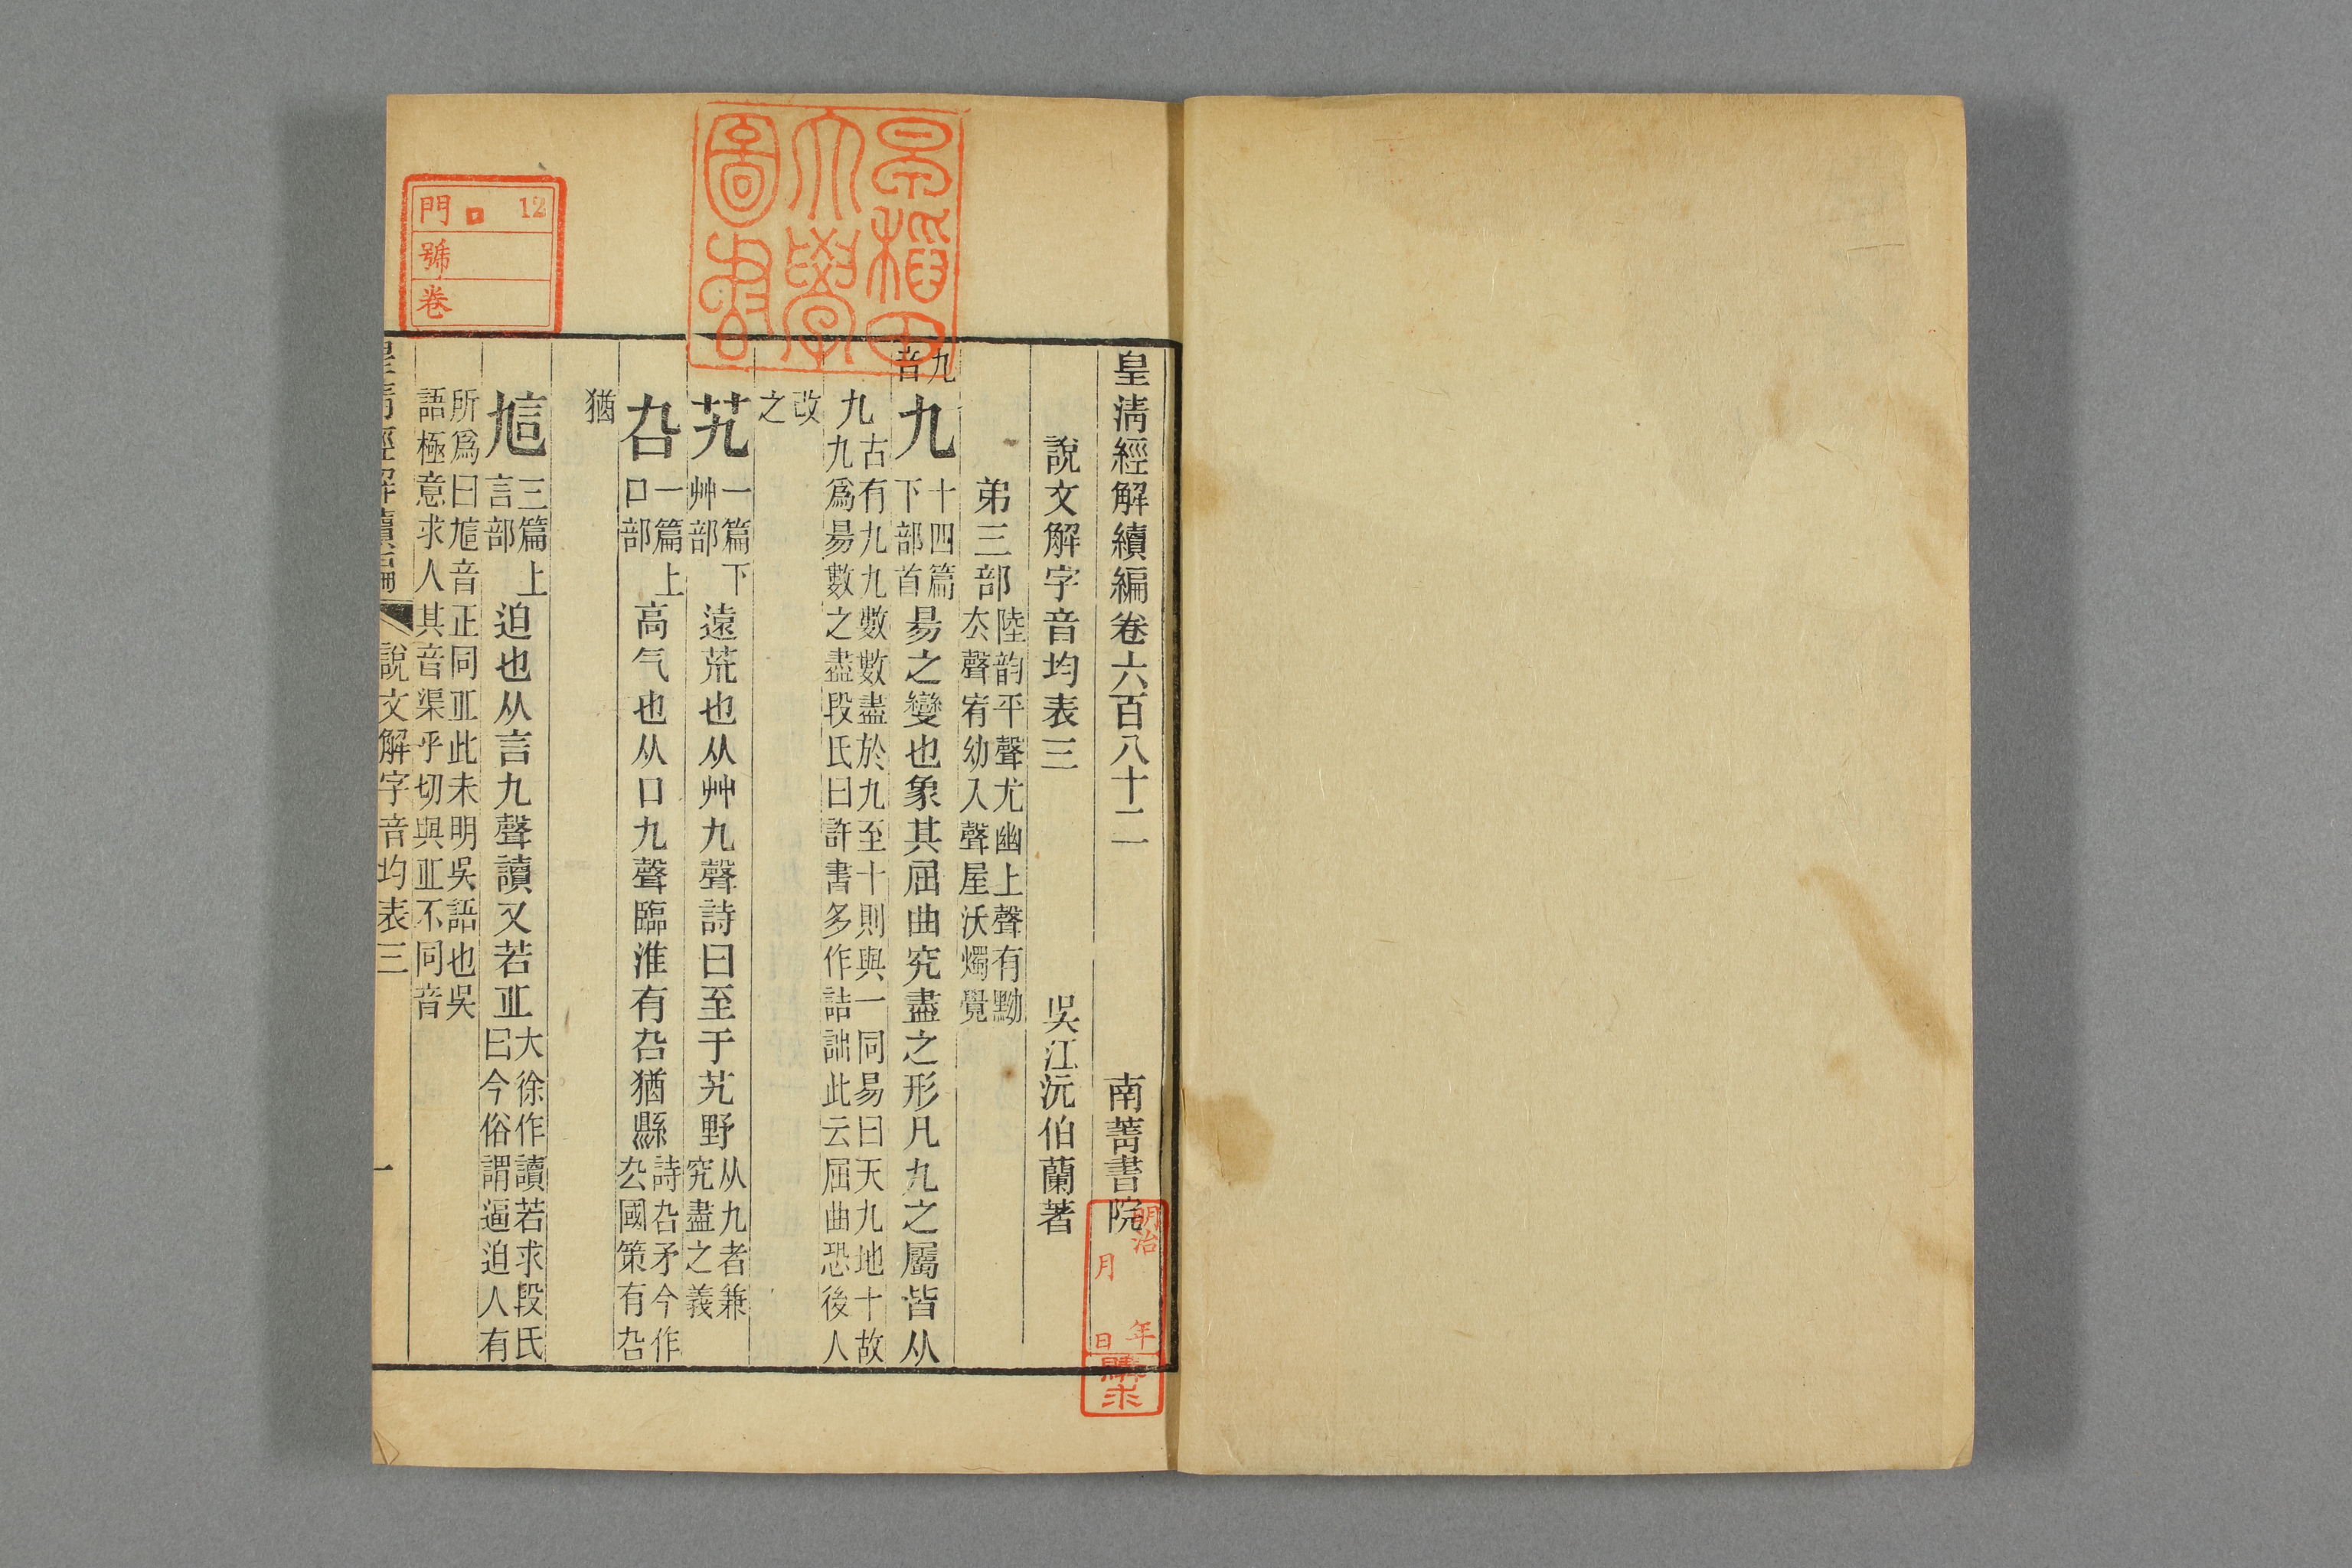 皇淸經解續編卷六百八十二
南菁書院
說文解字音均表三
吳江沅伯蘭著
弟三部
陸韵平聲尤幽上聲有黝
厺聲宥幼入聲屋沃燭覺
九音
九
十四篇
下部首
昜之變也象其屈曲究盡之形凡九之屬皆从
九
古有九九數數盡於九至十則與一同易曰天九地十故
九爲昜數之盡段氏曰許書多作詰詘此云屈曲恐後人
改
之
艽
一篇下
艸部
遠荒也从艸九聲詩曰至于艽野
从九者兼
究盡之義
叴
一篇上
口部
高气也从口九聲臨淮有叴猶縣
詩叴矛今作
厹國策有叴
猶
訄
三篇上
言部
迫也从言九聲讀又若丠
大徐作讀若求段氏
曰今俗謂逼迫人有
所爲曰訄音正同丠此未明吳語也吳
語極意求人其音渠乎切與丠不同音
皇淸經解續編
說文解字音均表三
一
早稻田
大學
圖書
12
門
號
卷
明治
年
月
日
購求